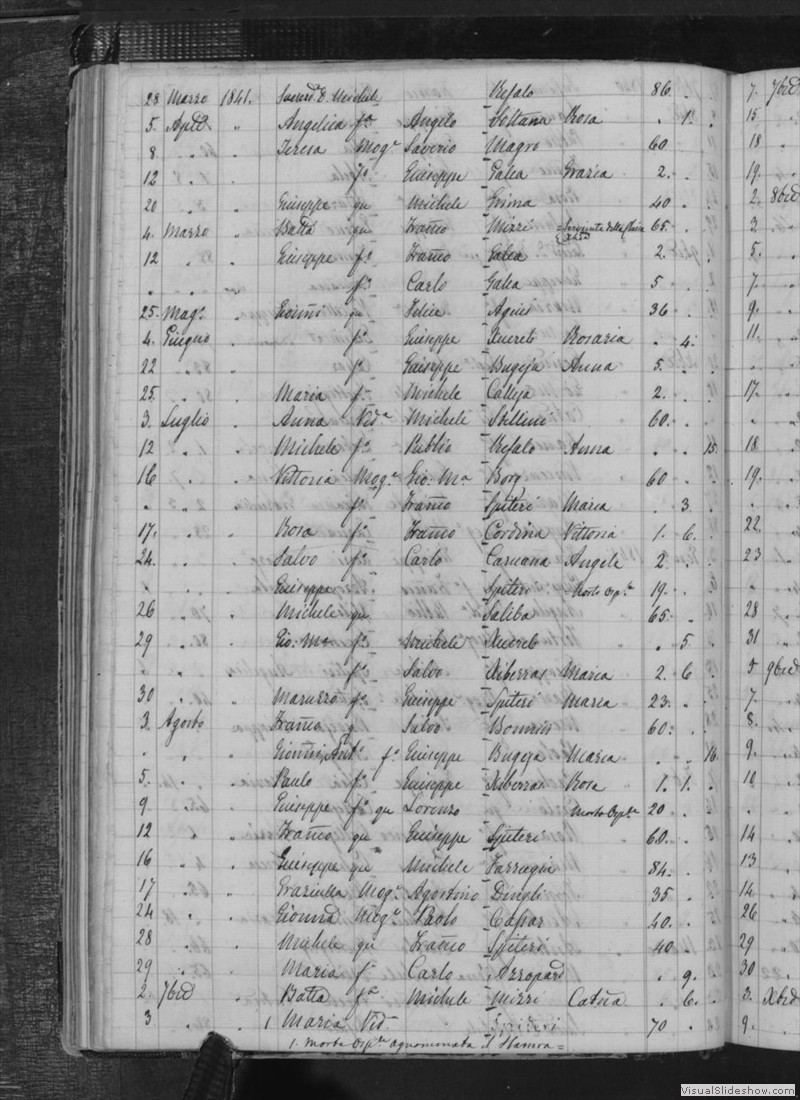 28 Marzo 1841. Michele Refalo 86. 7. 7bre
5. " Angelica fa Angelo Soltana Rosa . 1. 15
8 " Teresa Moge Saverio Magro 60 18
12 " fo Giuseppe Galea Grazia 2. 19.
20 " Giuseppe qu Michele Grima 40. 2. 8bre
4. Marzo " Batta qu Franco Mizzi 65. 3
12 " Giuseppe fo Franco Galea 2. 5.
" " fo Carlo Galea 5 7.
25. Mago " Gioanni qu Felice Agius 36 9.
4. Giugno " fo Giuseppe Xuereb Rosaria . 4. 11.
22 " fo Giuseppe Bugeja Anna 5.
25. " Maria fa Michele Calleja 2. 17.
3. Luglio " Anna Vida Michele Stellini 60.
12 " Michele fo Publio Refalo Anna . . 15. 18
16 " Vittoria Moge Gio. Ma Borg 60 19.
" " fo Franco Spiteri Maria . 3.
17. " Rosa fa Franco Cordina Vittoria 1. 6. 22
24. " Salvo fo Carlo Caruana Angela 2 23
" " Giuseppe Spiteri 19.
26 " Michele qu Saliba 65. 28
29 " Gio. Ma fo Michele Xuereb . 5. 31
" " fo Salvo Xiberras Maria 2. 6 5 9bre
30 " Maruzzo fo Giuseppe Spiteri Maria 23. 7.
3. Agosto " Franco q Salvo 60. 8.
" " Gionni Anto fo Giuseppe Bugeja Maria . . 16. 9.
5. " Paulo fo Giuseppe Xiberras Rosa 1. 1. 10
9 " Giuseppe fo qu Lorenzo 20
12 " Franco qu Giuseppe Spiteri 60. 14
16 " Giuseppe qu Michele Farrugia 84. 13
17 " Graziulla Moge Agostino Dingli 35 14
24 " Moge Paolo Caffar 40. 26
28 " Michele qu Franco Spiteri 40 29
29 " Maria fa Carlo Azzopardi . 9. 30
2. 7bre " Batta fo Michele Mizzi Catna . 6. 3. Xbre
3 " 1 Maria Vida Spiteri 70 9.
1. Morta agnominata il Hamra =
VisualSlideshow.com